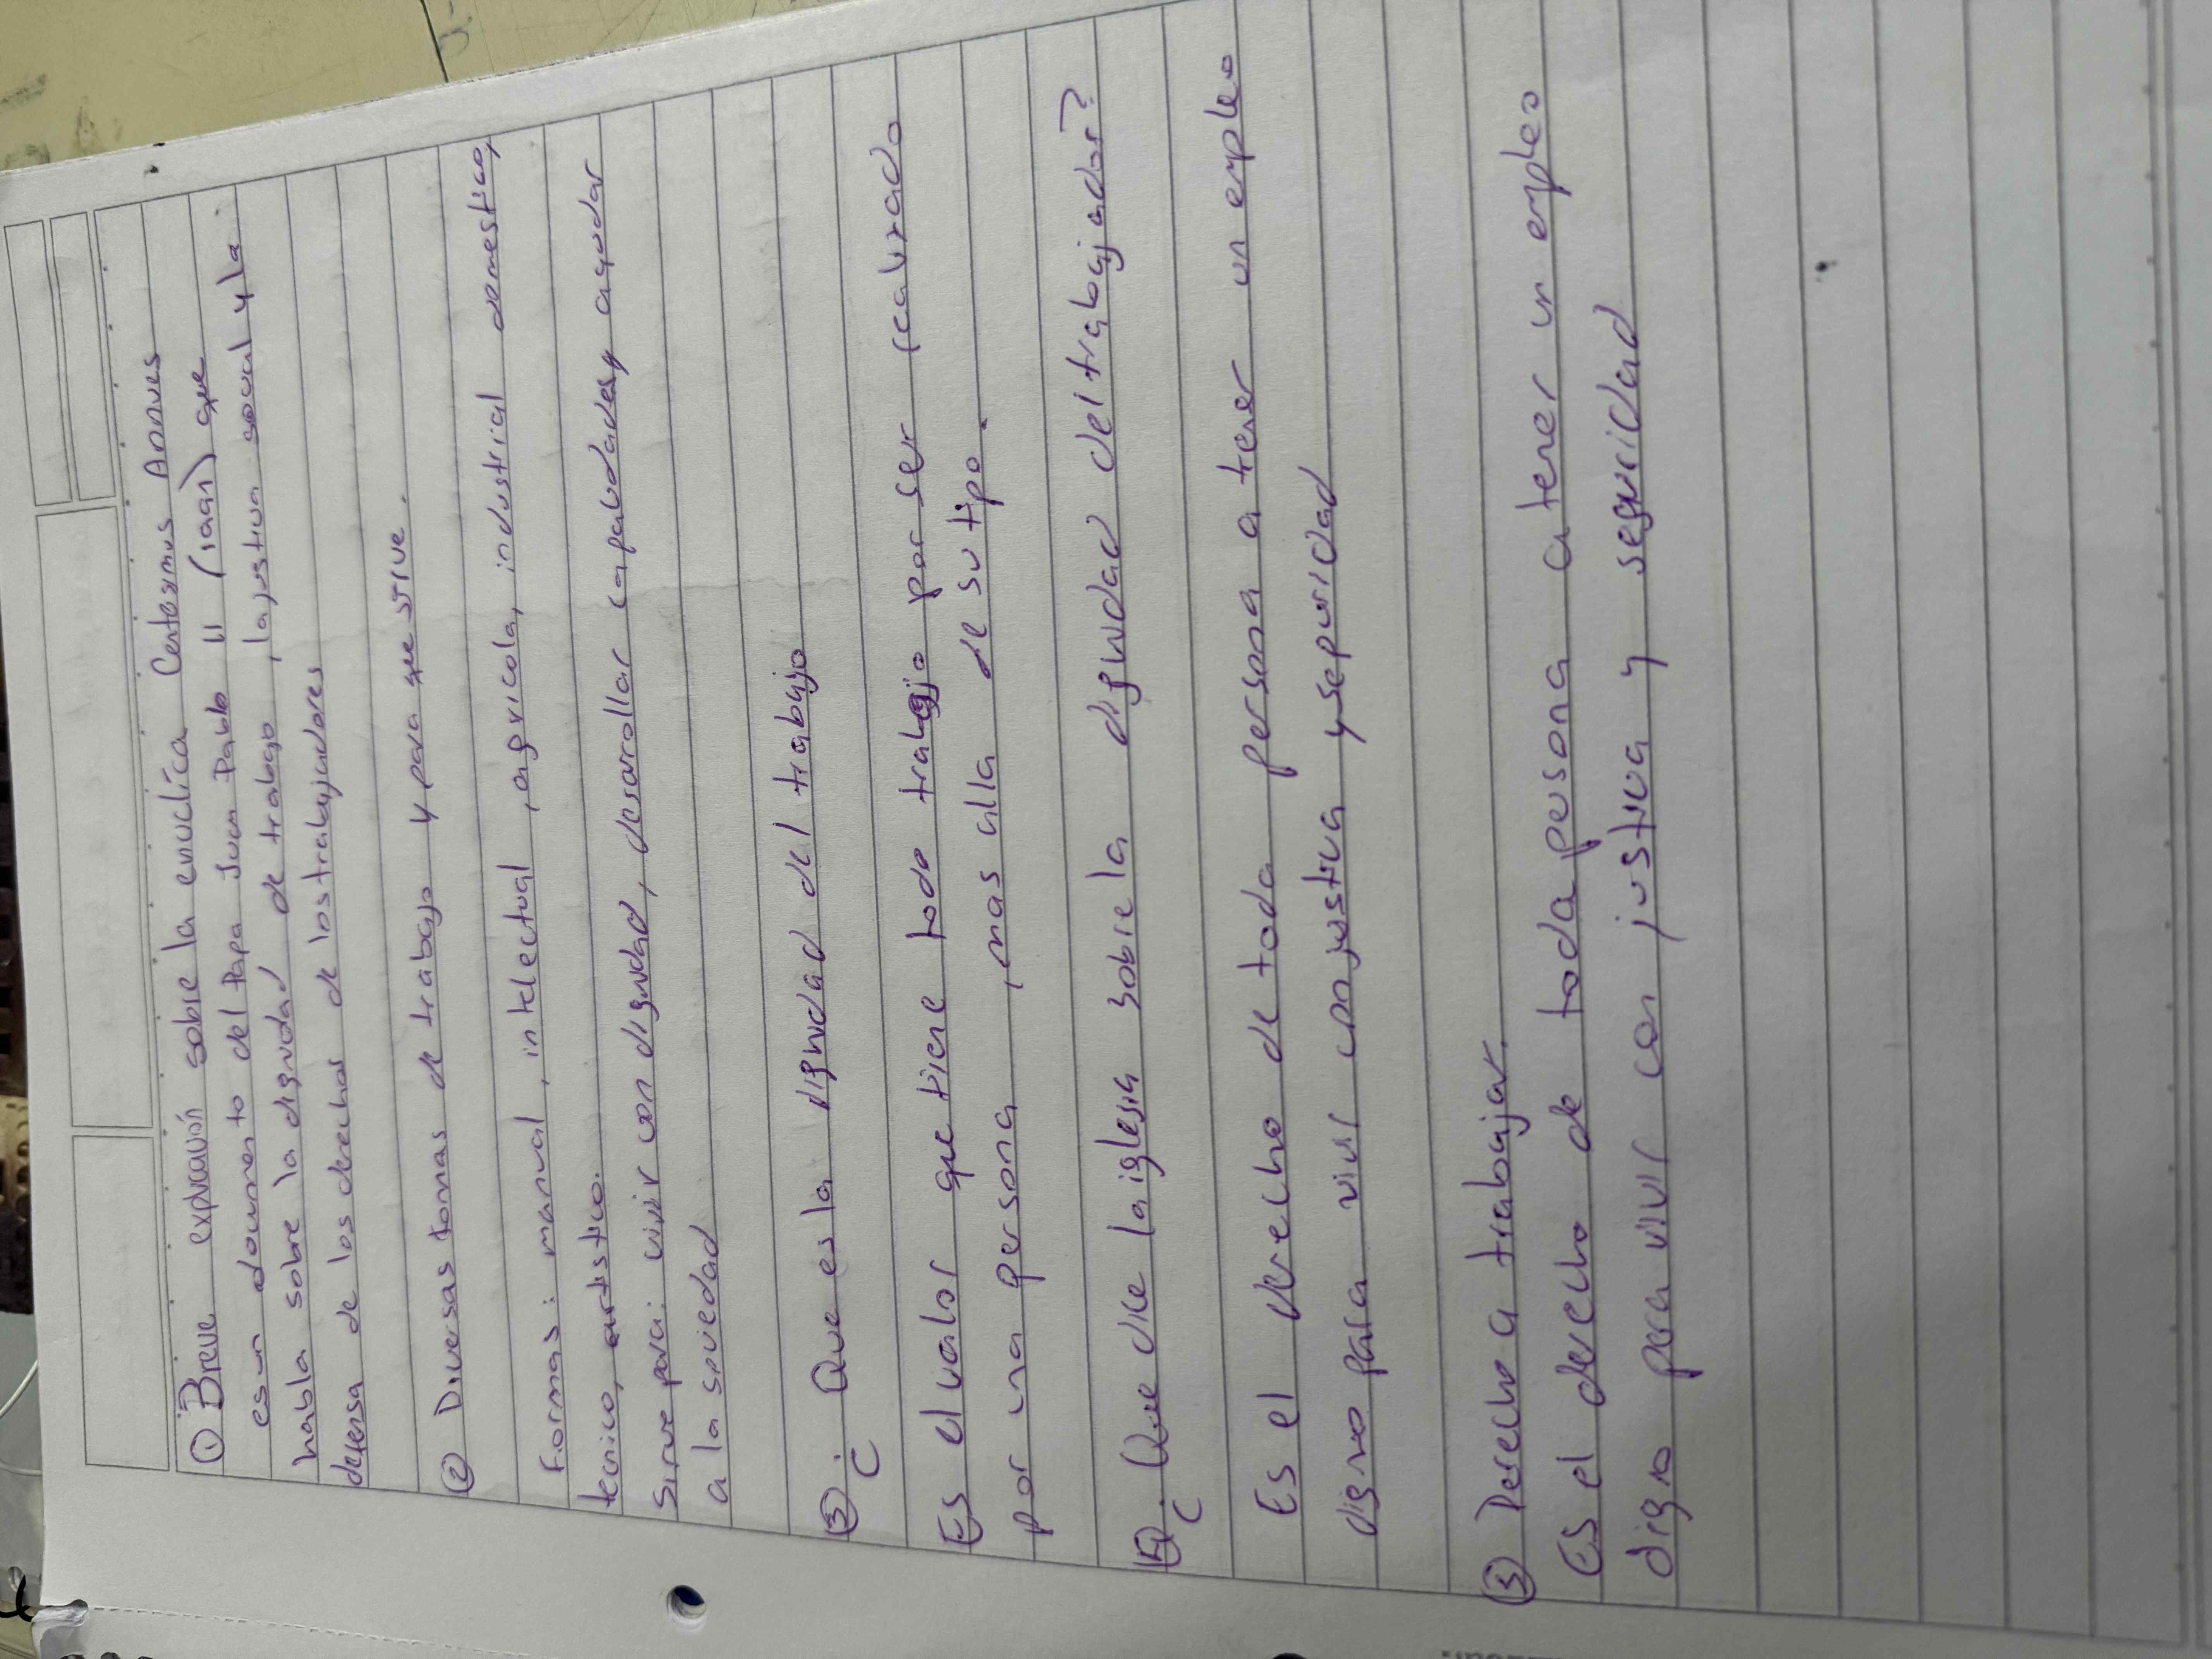 ① Breve explicación sobre la enciclíca Centesimus Annues
es un documento del Papa Juan Pablo II (1991) que
habla sobre la dignidad de trabajo, la justicia social y la
defensa de los derechos de los trabajadores
② Diversas formas de trabajo y para que sirve.
Formas: manual, intelectual, agrvicola, industrial domestico,
tecnico, artistico.
Sirve para: vivir con dignidad, desarollar capacidades y ayudar
a la sociedad
③ ¿Que es la dignidad del trabajo
Es el valor que tiene todo trabajo por ser realizado
por una persona, mas alla de su tipo.
④ ¿Que dice la iglesia sobre la dignidad del trabajador?
Es el derecho de toda persona a tener un empleo
digno para vivir con justicia y seguridad
⑤ Derecho a trabajar.
Es el derecho de toda persona a tener un empleo
digno para vivir con justicia y seguridad